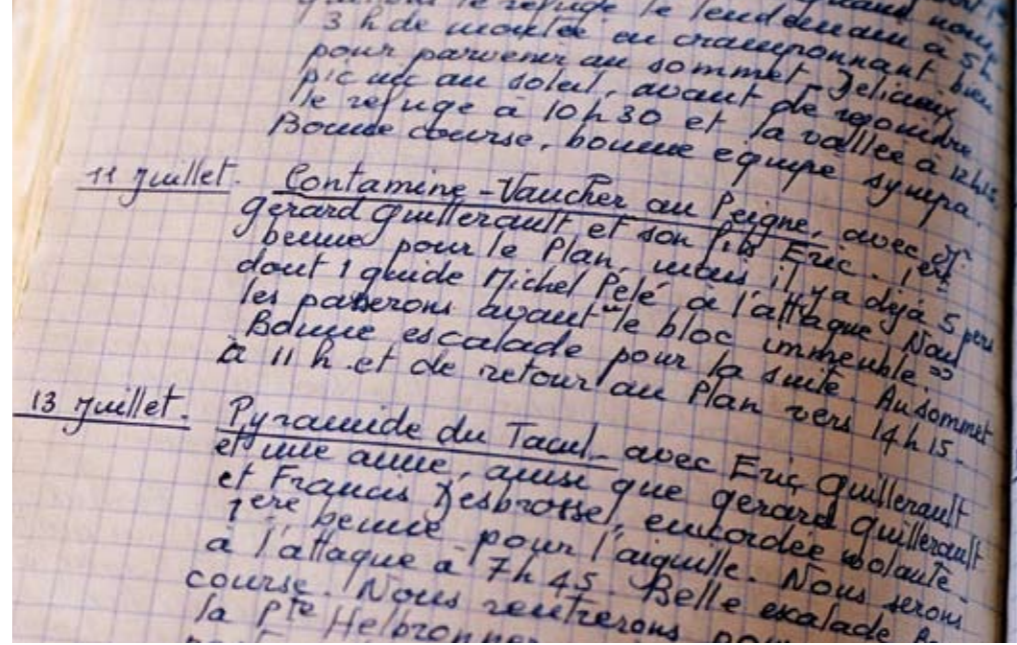 le refuge le lendemain à 5h.
3 h de montée en cramponnant bien
pour parvenir au sommet. Délicieux
pic nic au soleil, avant de rejoindre
le refuge à 10h30 et la vallée à 12h15
Bonne course, bonne équipe sympa.
11 juillet. Contamine-Vaucher au Peigne, avec
gérard Guillerault et son fils Eric. 1ère
benne pour le Plan, mais il y a déjà 5 pers
dont 1 guide Michel Pelé à l'attaque. Nous
les passerons avant le bloc immeuble.
Bonne escalade pour la suite. Au sommet
à 11 h. et de retour au Plan vers 14h15.
13 juillet. Pyramide du Tacul, avec Eric Guillerault
et une amie, ainsi que gerard Guillerault
et Francis Desbrosse, encordée volante.
1ère benne pour l'aiguille. Nous serons
à l'attaque à 7h45. Belle escalade
course. Nous rentrerons
la Pte Helbronner